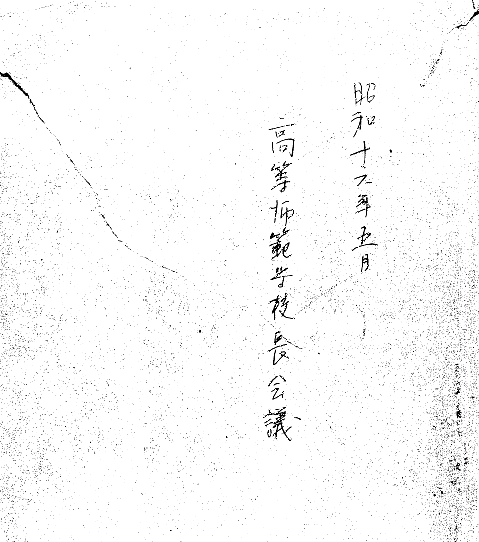 昭和十六年五月
高等師範学校長会議